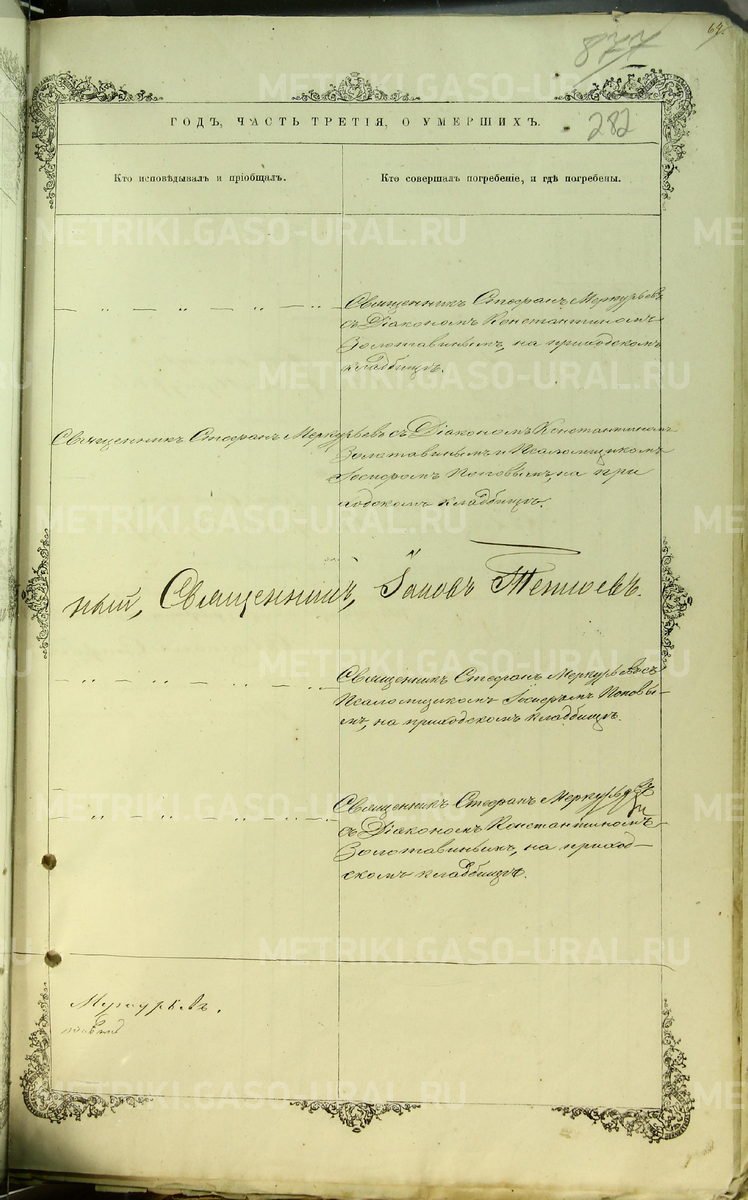 877
282
ГОДЪ, ЧАСТЬ ТРЕТІЯ, О УМЕРШИХЪ.
Кто исповѣдывалъ и пріобщалъ.
Кто совершалъ погребеніе, и гдѣ погребены.
METRIKI.GASO-URAL.RU
Священникъ Стефанъ Меркурьевъ
съ Діакономъ Константиномъ
Золотавинымъ, на приходскомъ
кладбищѣ.
Священникъ Стефанъ Меркурьевъ съ Діакономъ Константиномъ
Золотавинымъ и Псаломщикомъ
Поповымъ, на при
ходскомъ кладбищѣ.
ный, Священникъ, Іаковъ
Священникъ Стефанъ Меркурьевъ съ
Псаломщикомъ Поповы-
мъ, на приходскомъ кладбищѣ.
Священникъ Стефанъ Меркурьевъ
съ Діакономъ Константиномъ
Золотавинымъ, на приход-
скомъ кладбищѣ.
Меркурьевъ.